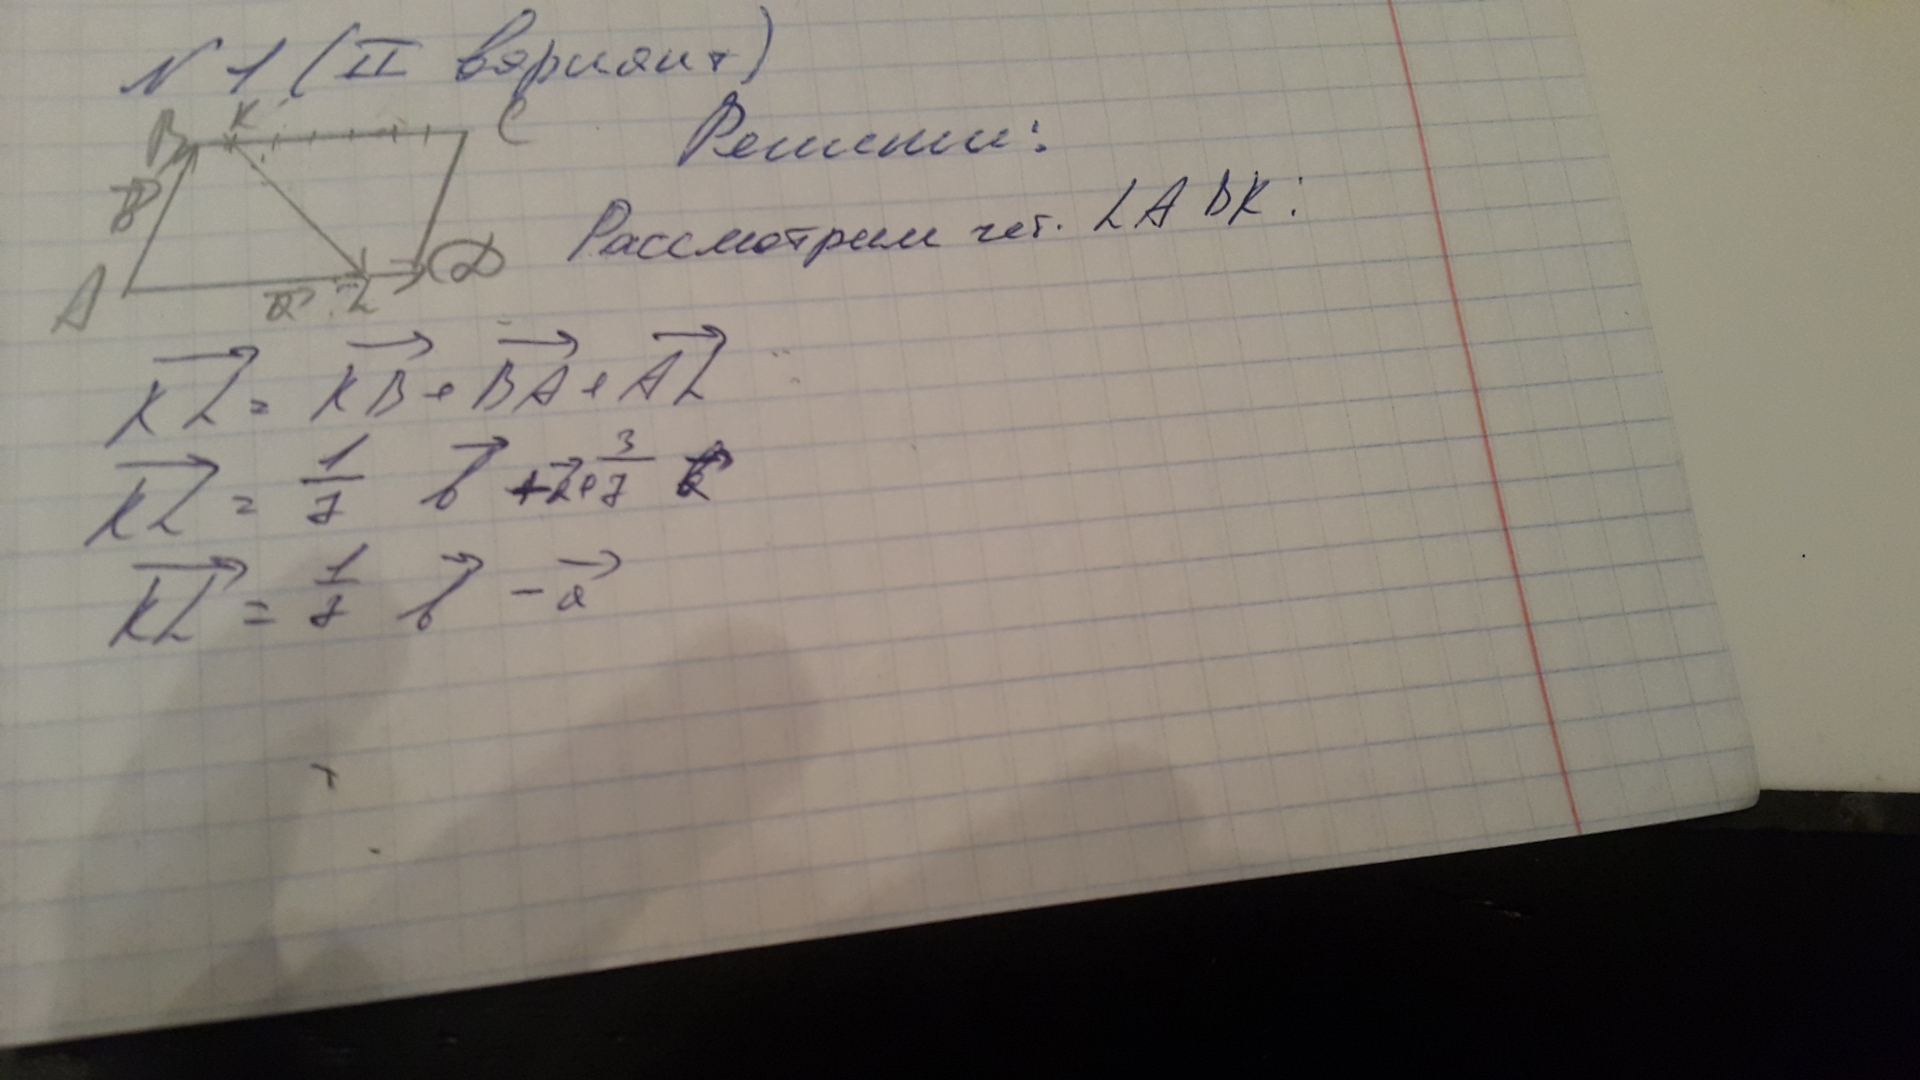 N 1 (II вариант)
B K C
b⃗
A a⃗ L D
Решити:
Рассмотрим чет. LABK:
K͞L⃗ = K͞B⃗ + B͞A⃗ + A͞L⃗
K͞L⃗ = 1/7 b⃗ + a⃗ + 3/7
K͞L⃗ = 1/7 b⃗ - a⃗